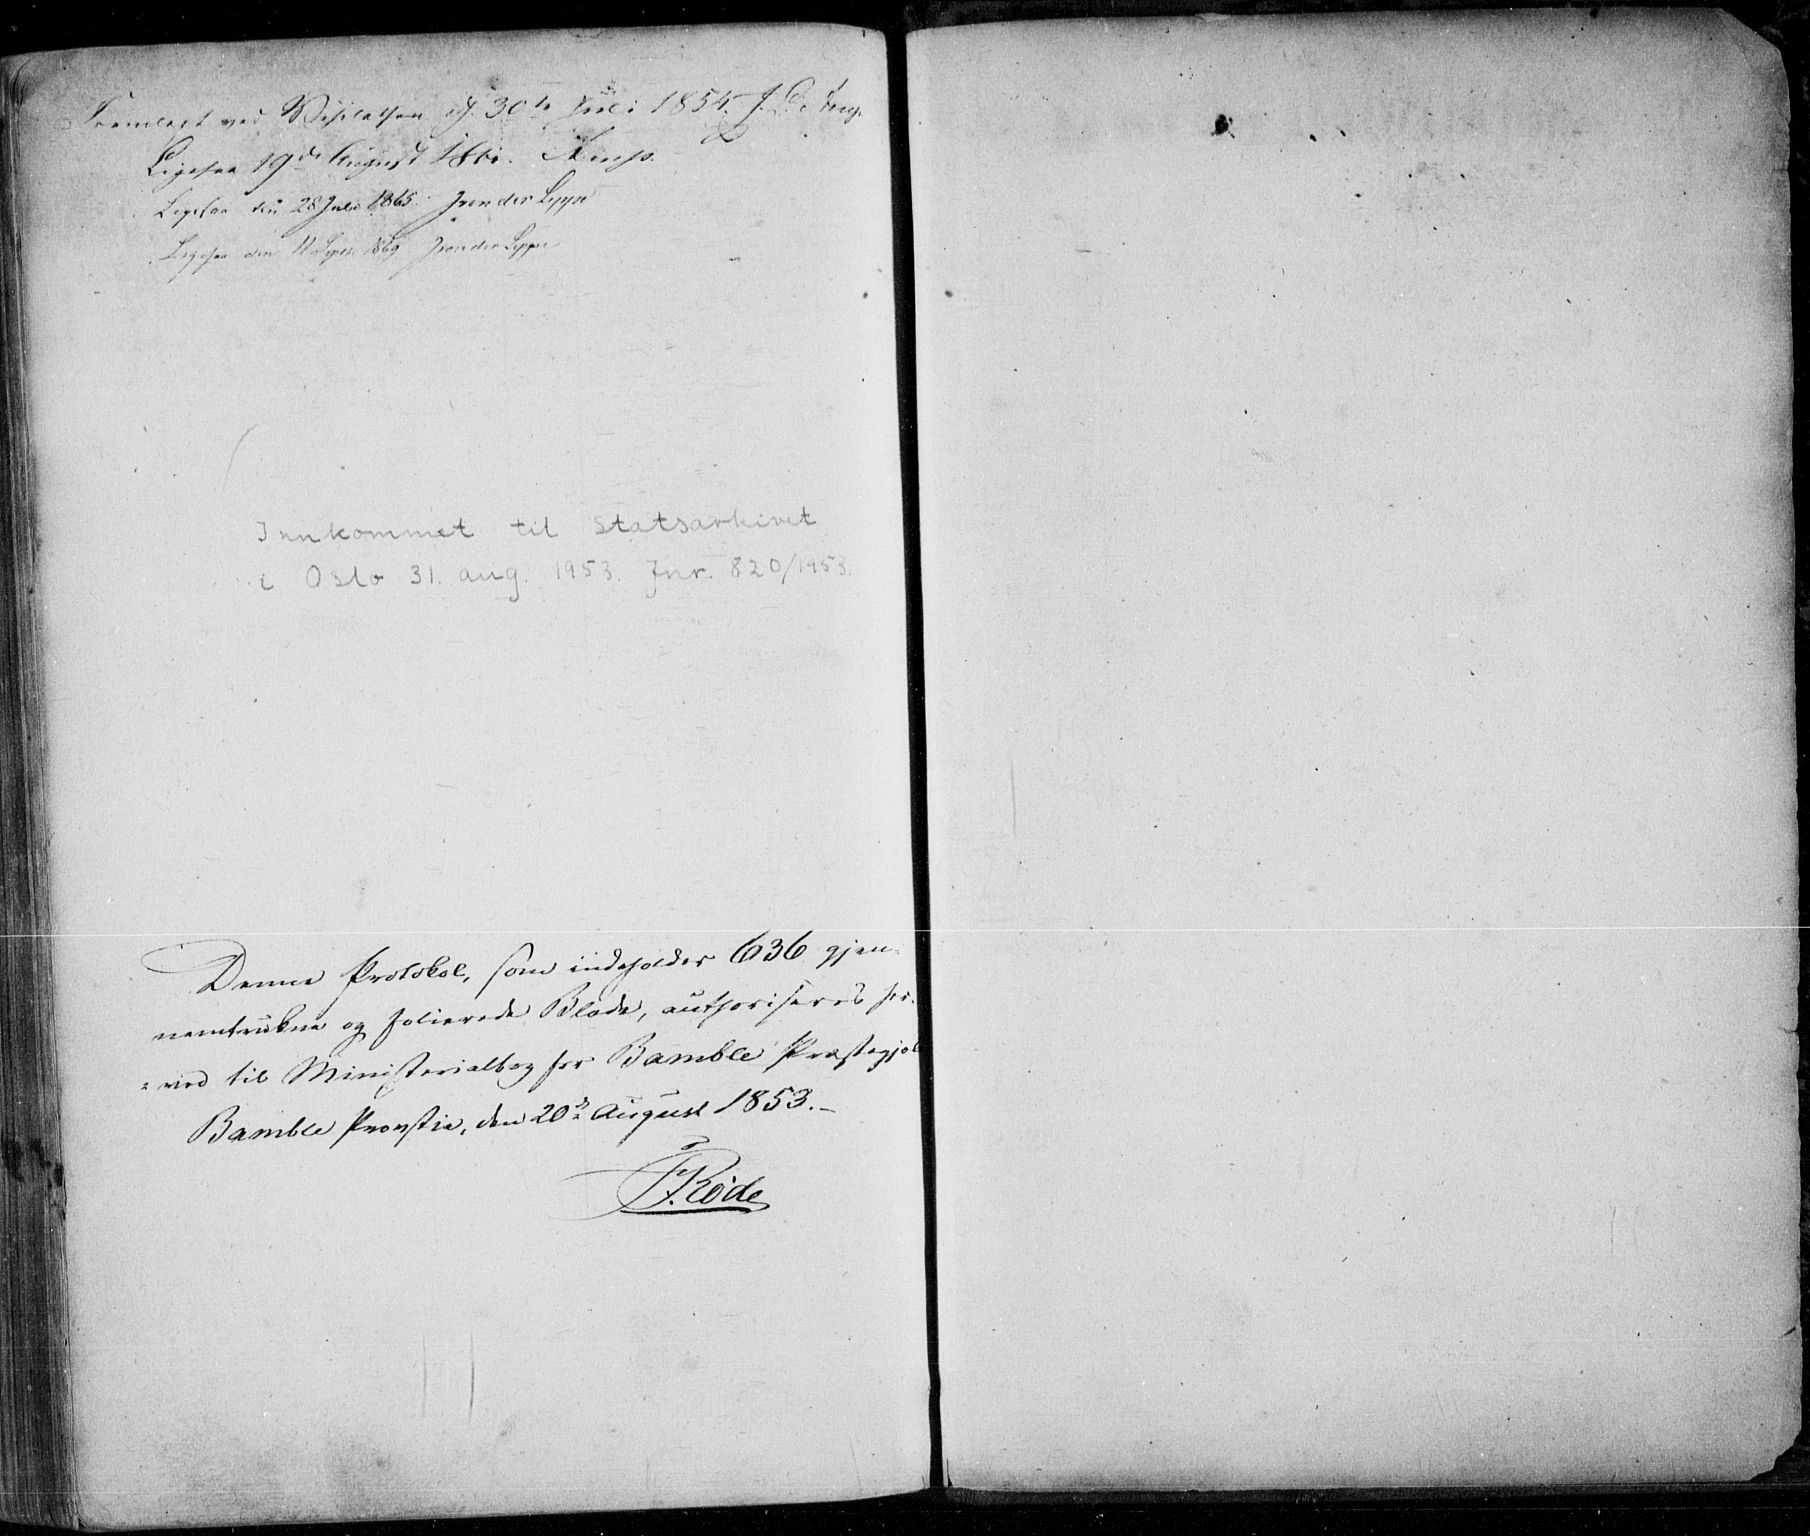 Fremlagt ved Visitatsen d. 30te Juli 1854.
Ligesaa 19de August 186
Ligesaa den 28 Juli 1865. J von der Lippe
Ligesaa den 11 Septb. 1869 J von der Lippe
Innkommet til Statsarkivet
i Oslo 31. aug. 1953. Jnr. 820/1953.
Denne Protokol, som indeholder 636 gjen-
nemtrukne og folierede Blade, authoriseres her-
=ved til Ministerialbog for Bamble Præstegjeld
Bamble Provstie, den 20de August 1853.-
F. Rode